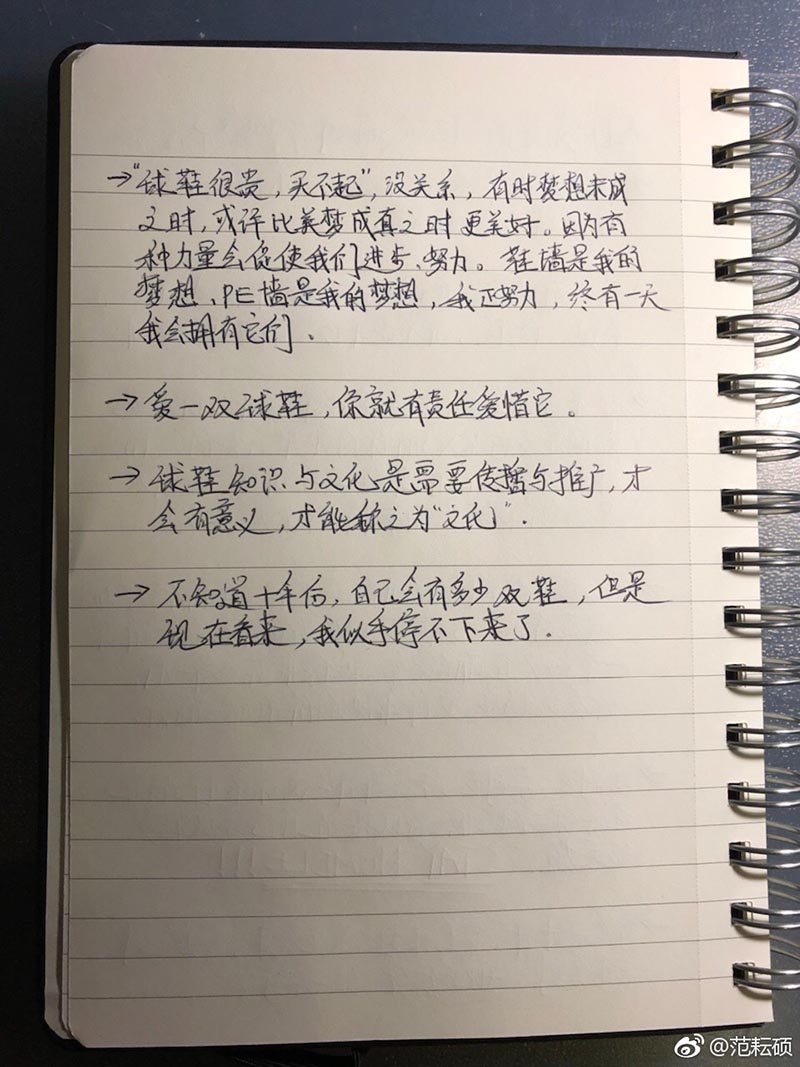 →“球鞋很贵，买不起”，没关系，有时梦想未成
之时，或许比美梦成真之时更美好。因为有
种力量会促使我们进步、努力。鞋墙是我的
梦想、PE墙是我的梦想，我正努力，终有一天
我会拥有它们.
→ 爱一双球鞋，你就有责任爱惜它。
→ 球鞋知识与文化是需要传播与推广，才
会有意义，才能称之为“文化”.
→ 不知道十年后，自己会有多少双鞋，但是
现在看来，我似乎停不下来了.
@范耘硕